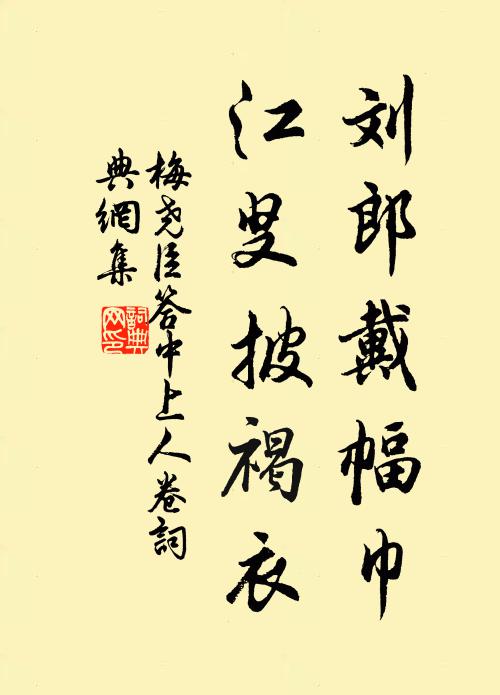 刘郎戴幅巾
江叟披褐衣
梅尧臣答中上人卷词
典網集
詞典網印